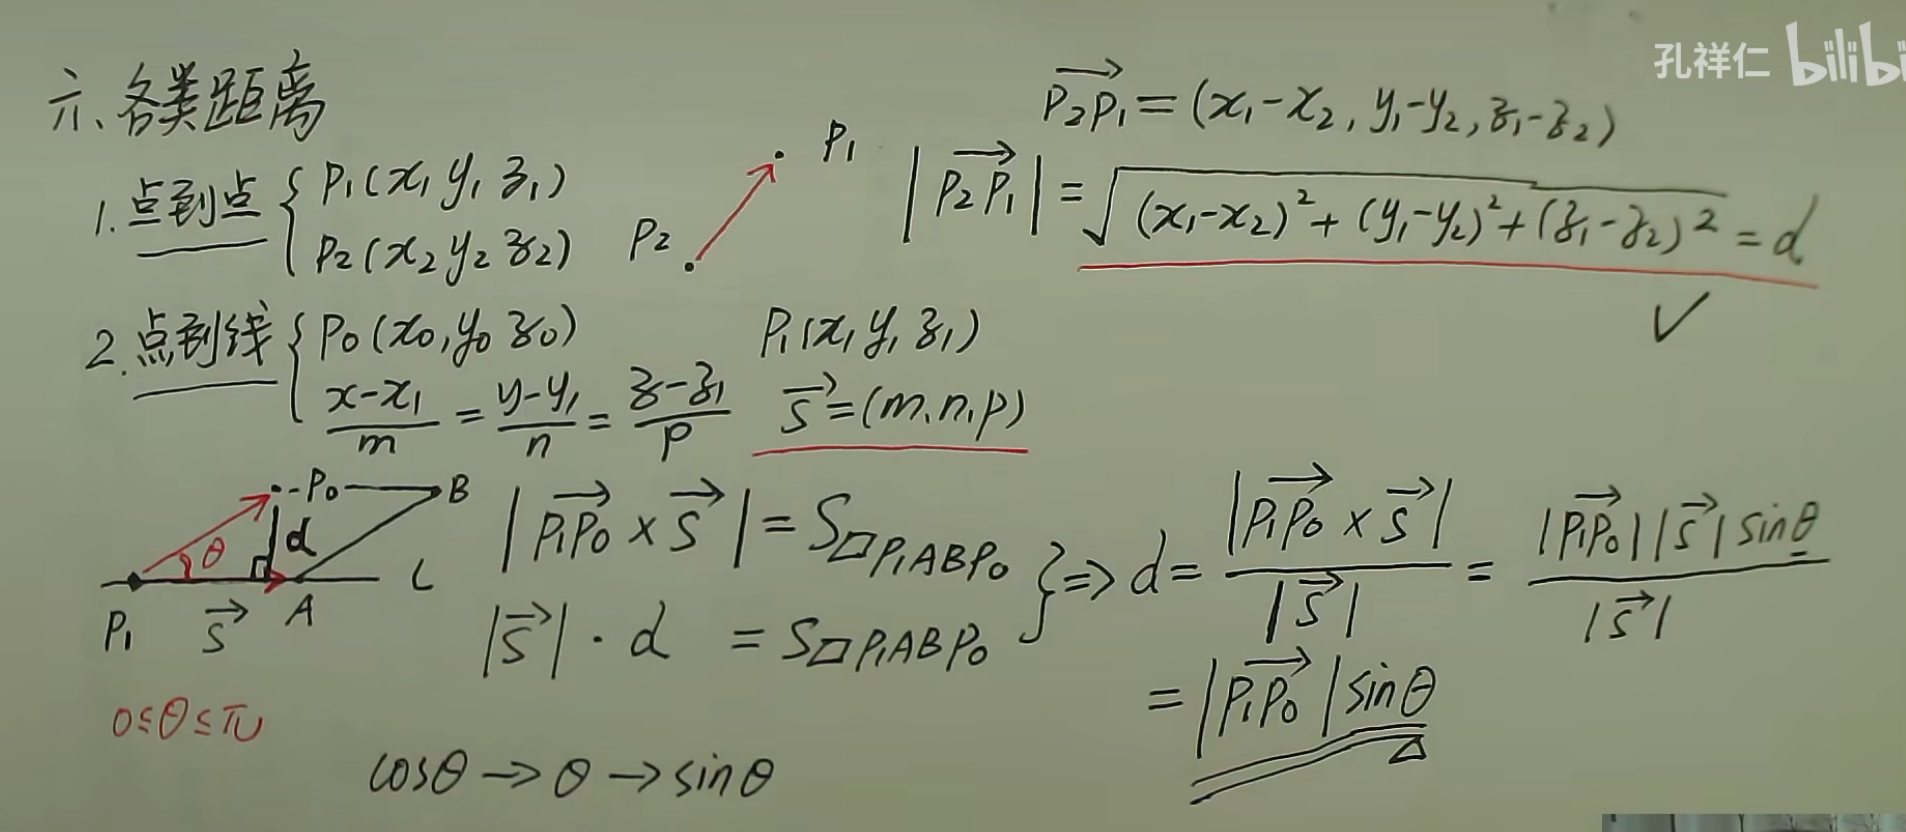 孔祥仁 bilibi
六、各类距离
P₂P₁ = (x₁-x₂, y₁-y₂, z₁-z₂)
1. 点到点 { P₁(x₁ y₁ z₁)
P₂(x₂ y₂ z₂)
P₁
P₂
|P₂P₁| = √((x₁-x₂)² + (y₁-y₂)² + (z₁-z₂)²) = d
✓
2. 点到线 { P₀(x₀, y₀ z₀)
(x-x₁)/m = (y-y₁)/n = (z-z₁)/p
P₁(x₁ y₁ z₁)
s⃗ = (m, n, p)
P₀ B
θ d
L
P₁ s⃗ A
|P₁P₀ × s⃗| = S▱P₁ABP₀
|s⃗| · d = S▱P₁ABP₀
} ⇒ d = |P₁P₀ × s⃗| / |s⃗| = |P₁P₀| |s⃗| sinθ / |s⃗|
= |P₁P₀| sinθ
0≤θ≤π
cosθ → θ → sinθ